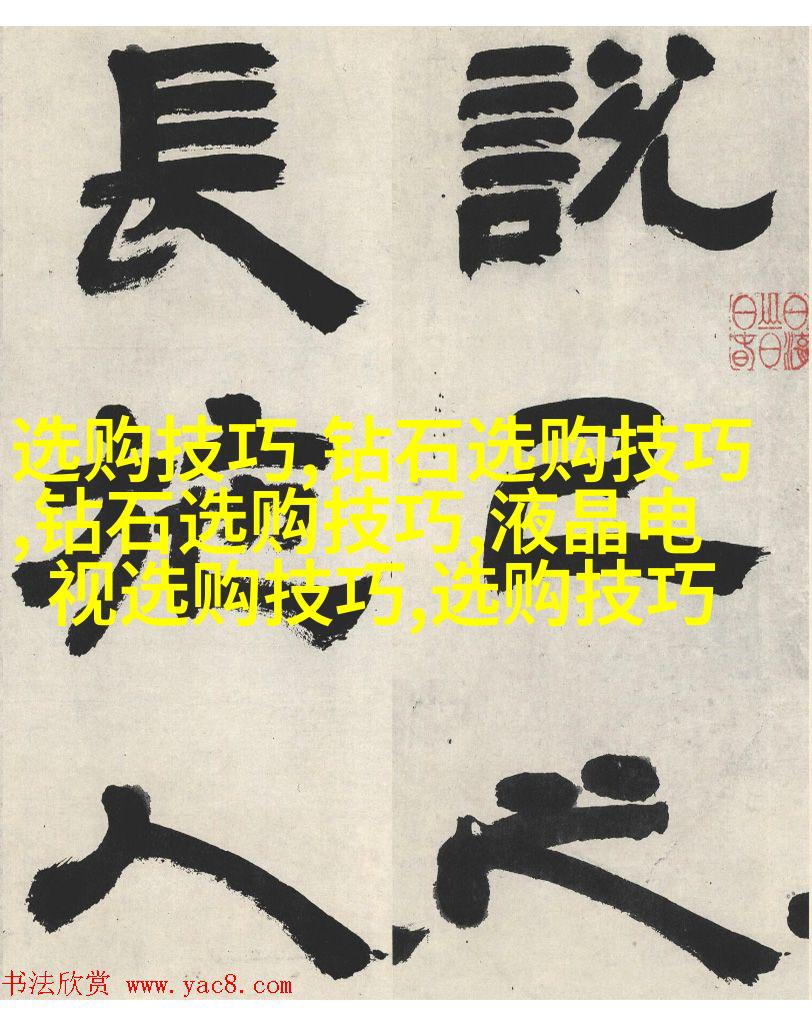 說己之
長施人
选购技巧,钻石选购技巧
,钻石选购技巧,液晶电
视选购技巧,选购技巧
书法欣赏 www.yac8.com